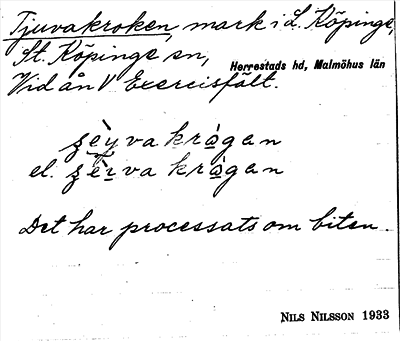 Tjuvakroken, mark i L. Köpinge,
St. Köpinge sn,
Herrestads hd, Malmöhus län
Vid ån V Exercisfält.
ʂèyva kràgan
el. ʂèiva kràgan
Det har processats om biten.
NILS NILSSON 1933